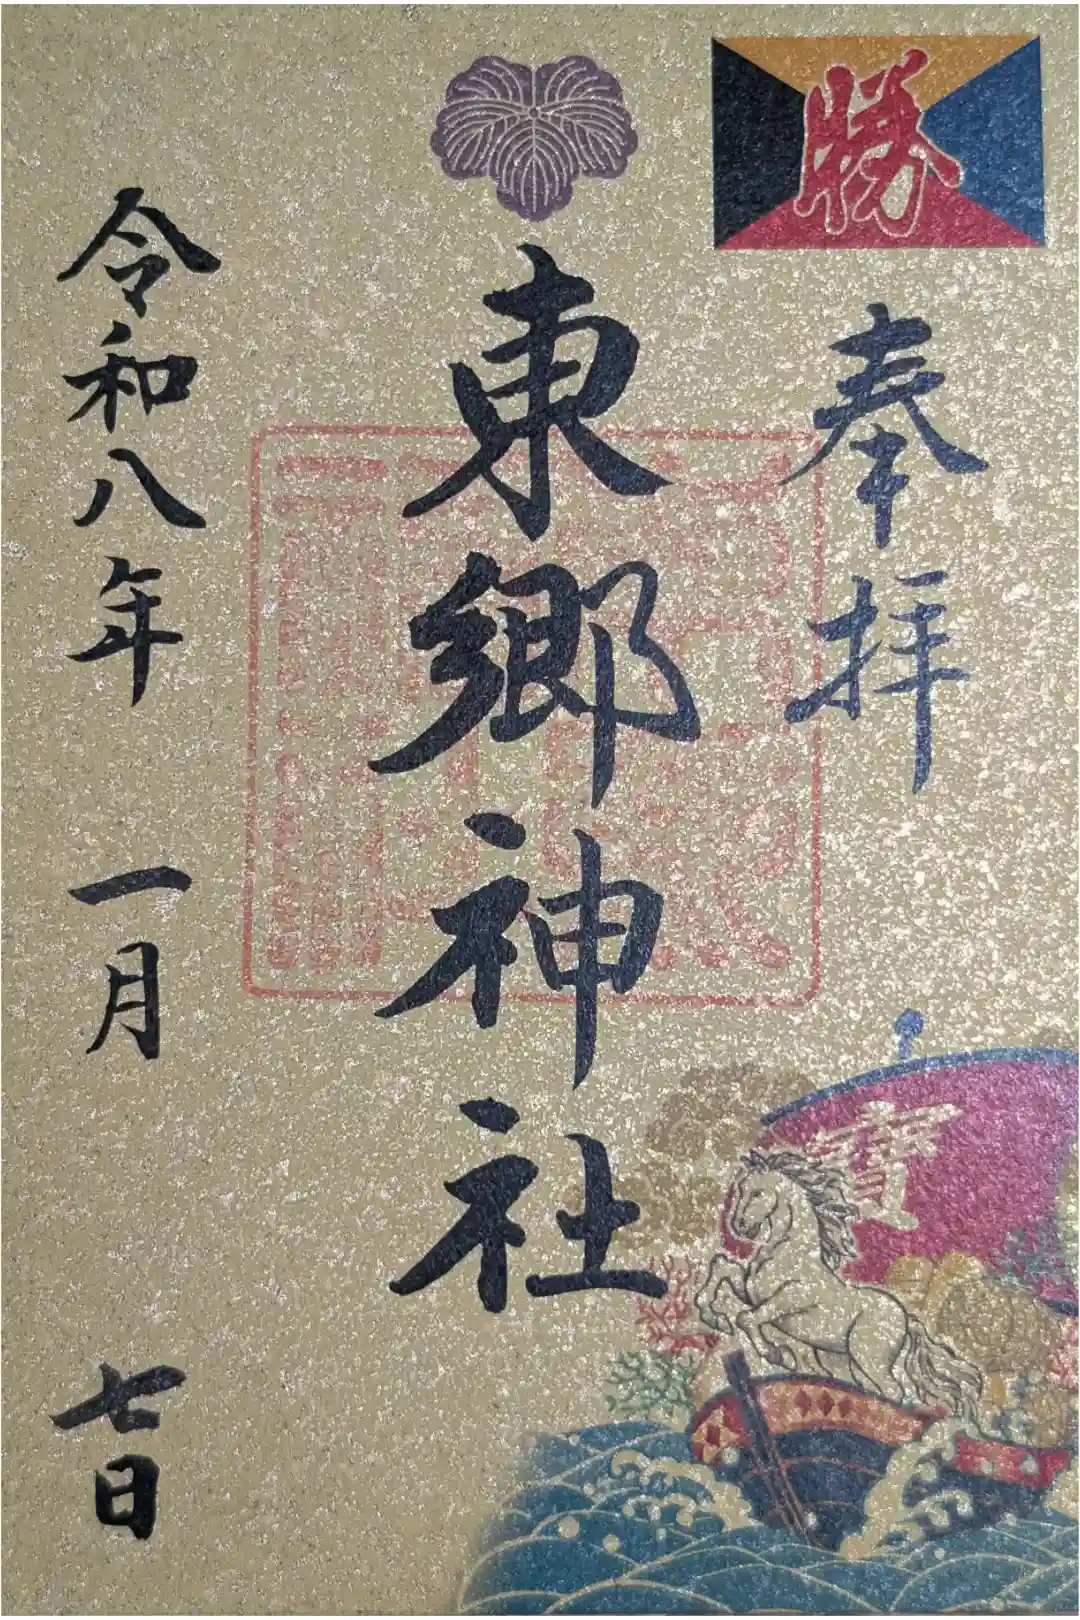 勝
奉拝
東郷神社
令和八年 一月 七日
寳